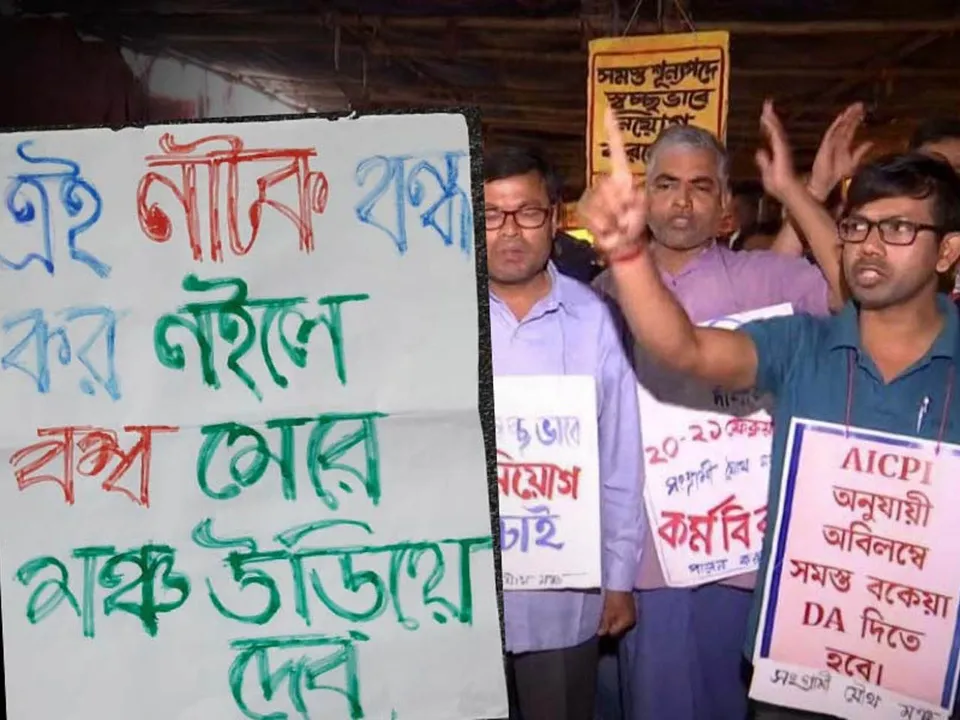 এই নাটক বন্ধ
কর নইলে
বম্ব মেরে
মঞ্চ উড়িয়ে
দেব
সমস্ত শূন্যপদে
স্বচ্ছভাবে
নিয়োগ
চ্ছ ভাবে
নিয়োগ
চাই
20-21 ফেব্রুয়া
সংগ্রামী যৌথ ম
কর্মবির
পালন কর
AICPI
অনুযায়ী
অবিলম্বে
সমস্ত বকেয়া
DA দিতে
হবে।
সংগ্রামী যৌথ মঞ্চ